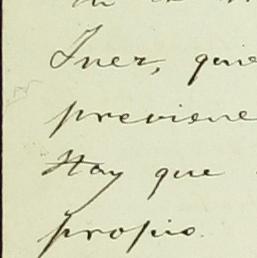 Inez, quie
previene
Hay que
propio.